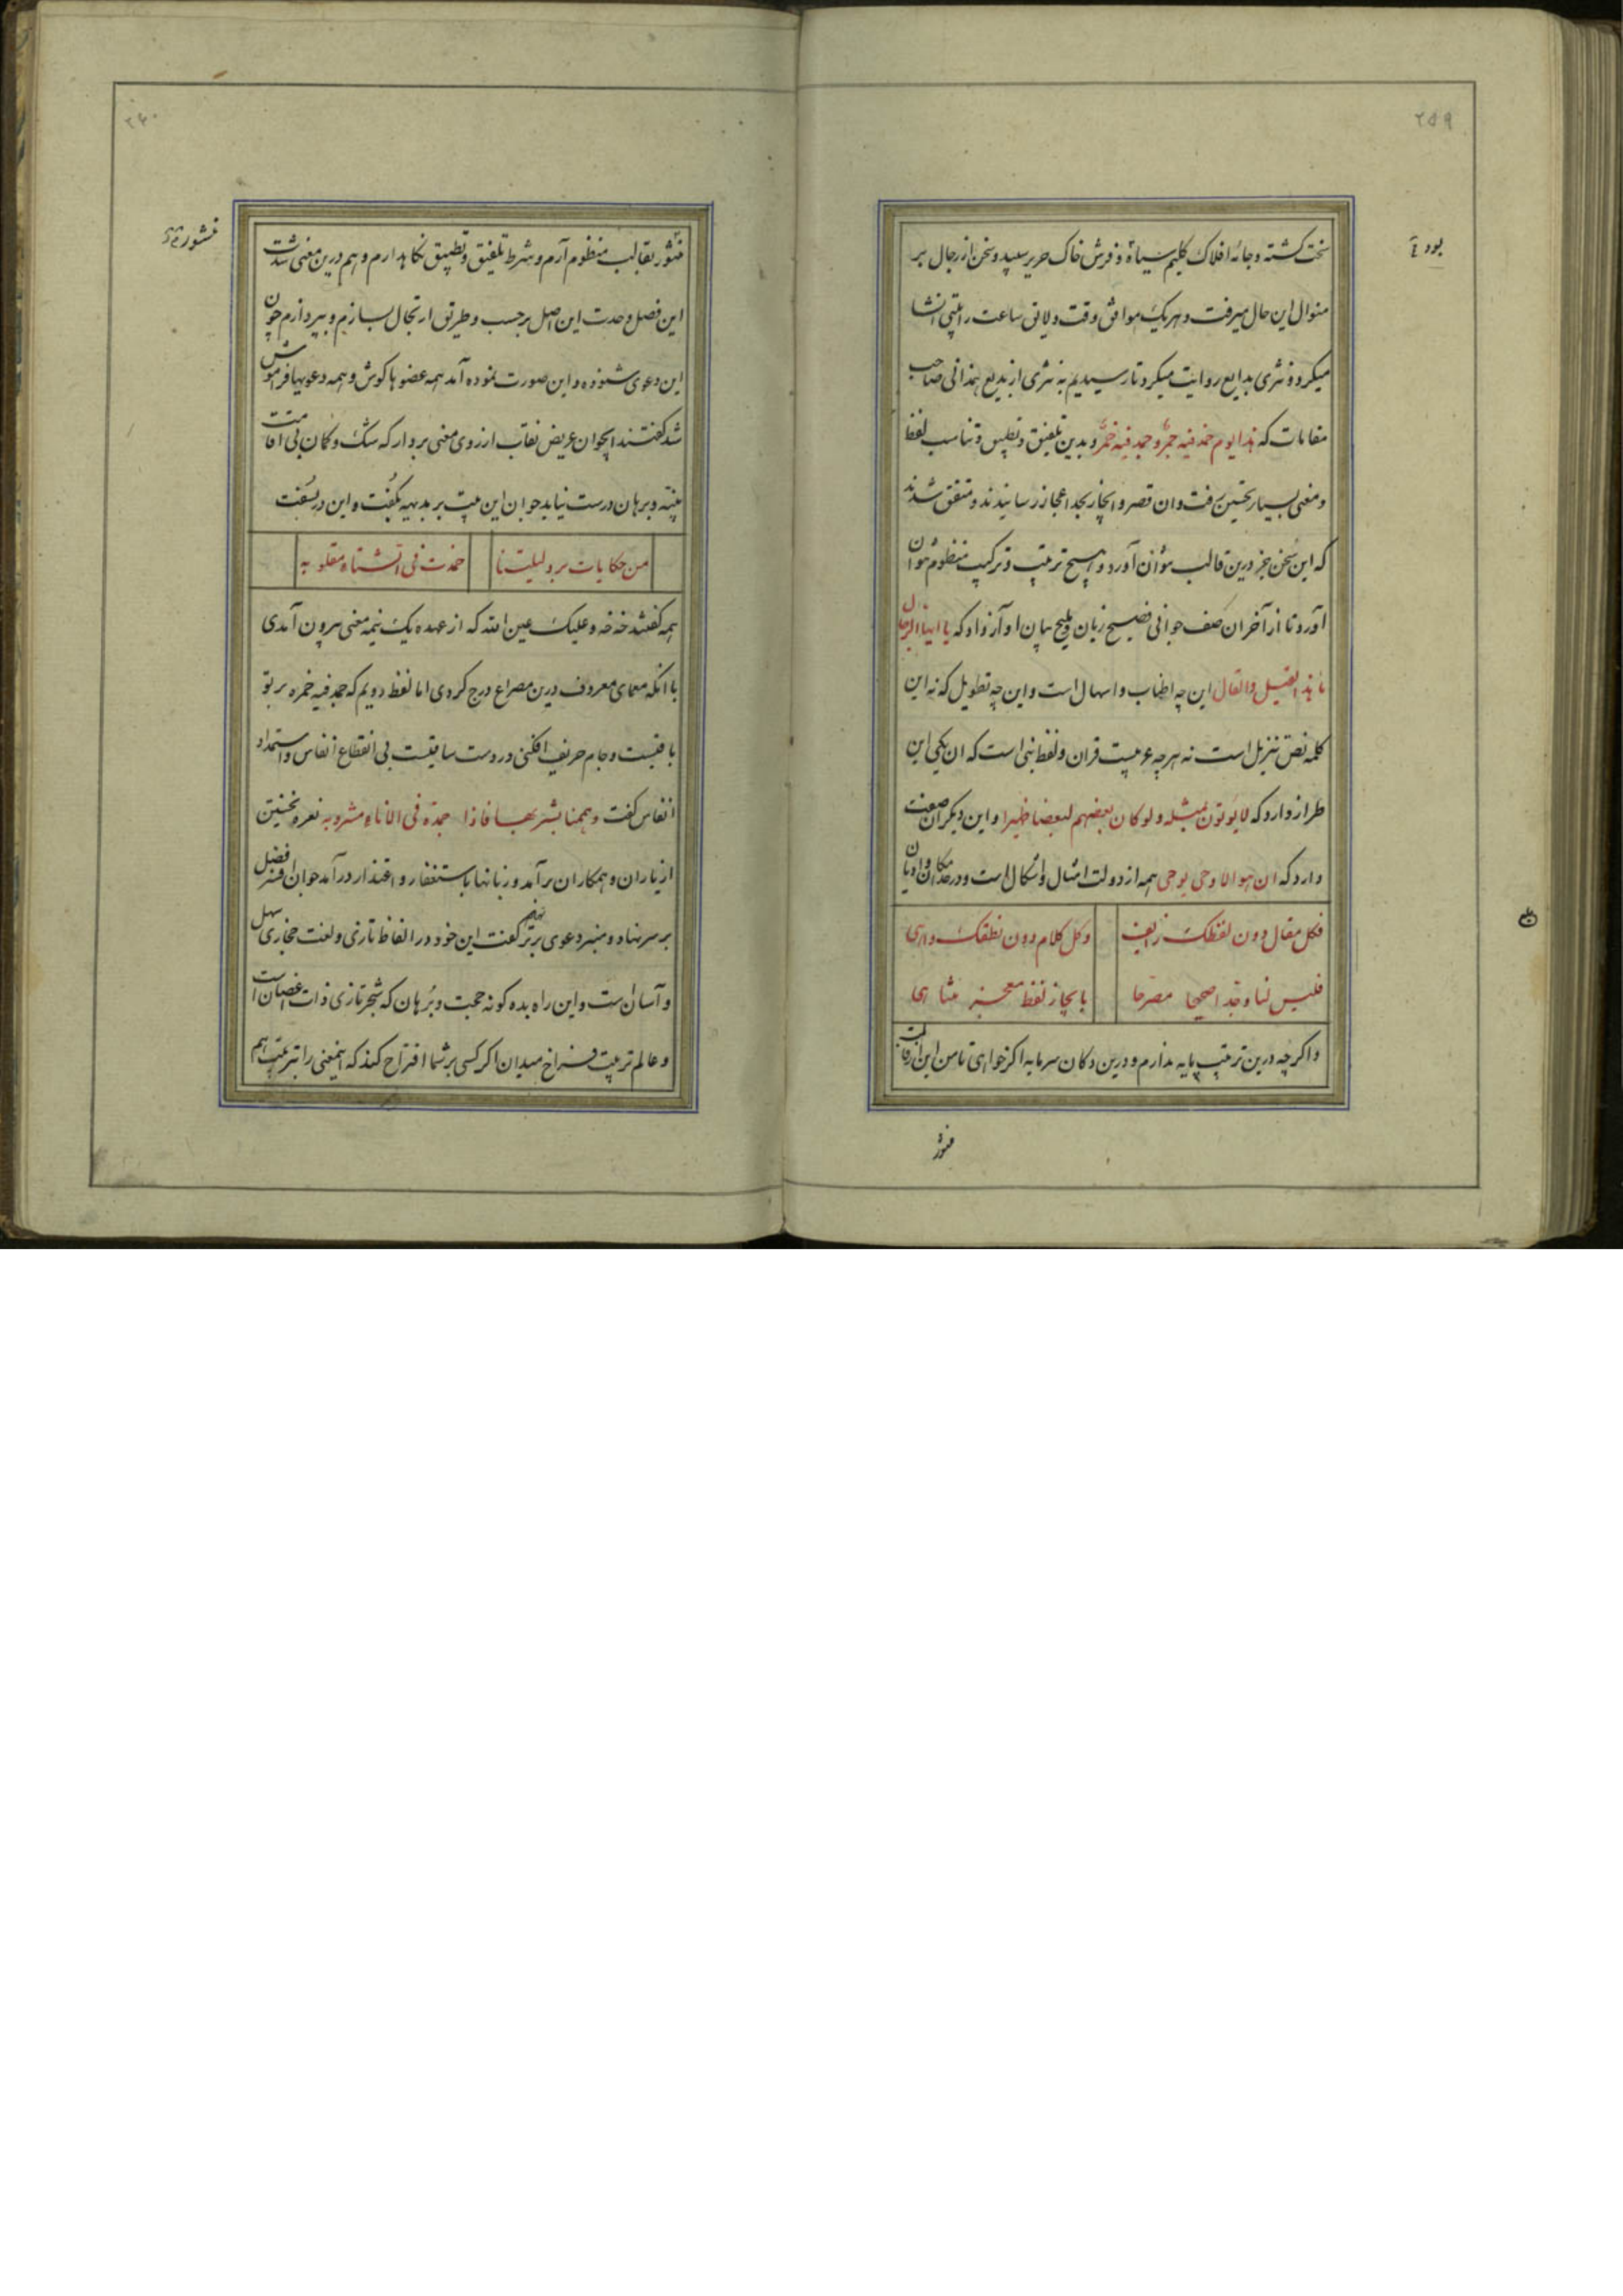 ۲۵۹
بود
سخت گشته و جامهٔ افلاک گلیم سیاه و فرش خاک حریر سپید و سخن از رجال بر
منوال این حال میرفت و هر یک موافق وقت و لایق ساعت را بیتی انشا
میکرد و نثری بدایع روایت میکرد تا رسیدیم به نثری از بدیع همدانی صاحب
مقامات که هذا یوم خمد فیه جمر و جمد فیه خمر و بدین تلفیق و تطبیق و تناسب لفظ
و معنی بسیار تحسین رفت و ان قصر و ایجاز بحد اعجاز رسانیدند و متفق شدند
که این سخن جز درین قالب نتوان آورد و هیچ ترتیب و ترکیب منظوم نتوان
آورد تا از آخر ان صف جوانی فصیح زبان و ملیح بیان او آواز داد که یا ایها الرجال
ما هذا القیل والقال این چه اطناب و اسهال است و این چه تطویل که نه این
کلمه نص تنزیل است نه هر چه عربیت قران و لفظ نبی است که ان یکی این
طراز دارد که لا یوتون بمثله ولو کان بعضهم لبعض ظهیرا و این دیگر ان صفت
دارد که ان هو الا وحی یوحی همه از دولت امثال و اشکال است و در حد مکان و ادیان
فکل مقال دون لفظک زایف
وکل کلام دون نطقک واهی
فلیس لنا وجد اصحها مصرحا
بایجاز لفظ معجز متناهی
و اگر چه درین ترتیب پایه ندارم و درین دکان سرمایه اگر خواهی تا من این
منثور
۲۶۰
منثور
منثور بقالب منظوم آرم و شرط تلفیق و تطبیق نگاهدارم و هم درین معنی
این فصل و حدت این اصل بر حسب و طریق ارتجال بسازم و بپردازم چون
این دعوی شنوده و این صورت نموده آمد همه عضوها گوش و همه دعویها فراموش
شد گفتند ایجوان عریض نقاب از روی معنی بردار که شک و گمان بی اقامت
بینه و برهان درست نیاید جوان این بیت بر بدیهه بگفت و این در بسفت
من حکایات برد لیلتنا
خمدت فی الشتاء مقلوبه
همه گفتند خه خه و علیک عین الله که از عهده یک نیمه معنی بیرون آمدی
با انکه معمای معروف درین مصراع درج کردی اما لفظ دویم که جمد فیه خمره بر تو
باقیست و جام حریف افکنی در دست ساقیست بی انقطاع انفاس و استمداد
انفاس گفت و همنا بشربها فاذا جمدت فی الاناء مشروبه نعره تحسین
از یاران و همکاران برآمد و زبانها باستغفار و اعتذار درآمد جوان افسر فضل
بر سر نهاد و منبر دعوی برتر نهاد گفت این خود در الفاظ تازی و لغت حجازی سهل
و آسان است و این راه بده گونه حجت و برهان که شجر تازی ذات اغصان است
و عالم ترتیب فراخ میدان اگر کسی بر شما اقتراح کند که اینمعنی را بترتیب هم